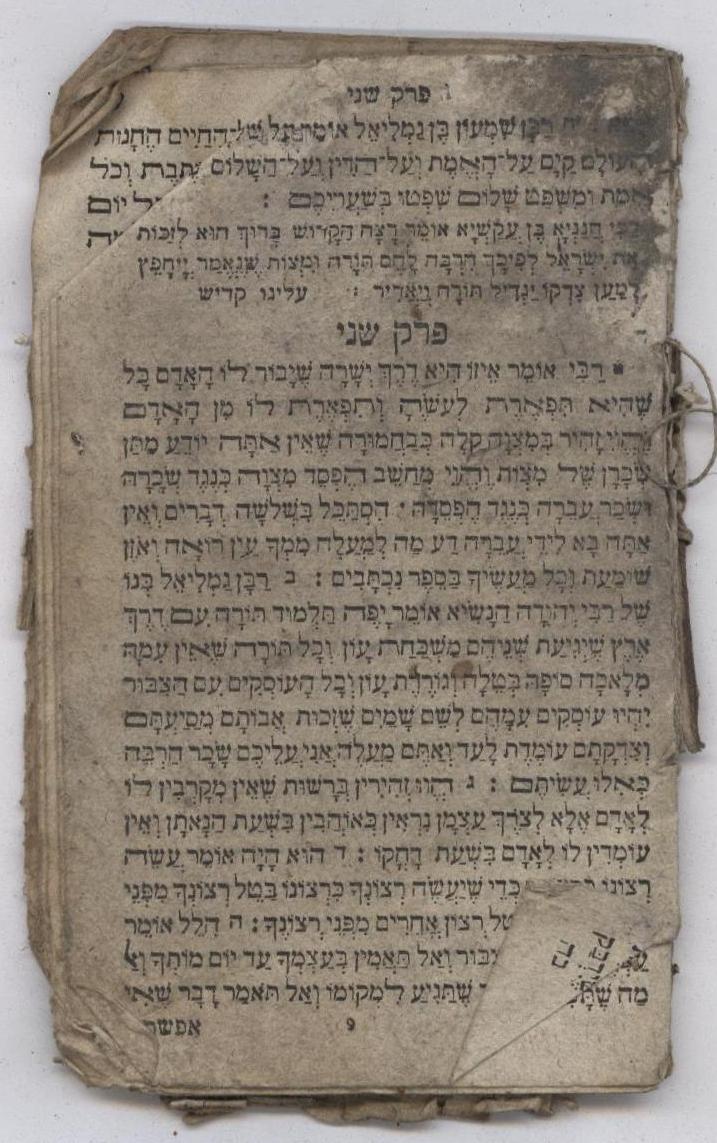 פרק שני
רַבָּן שִׁמְעוֹן בֶּן גַמְלִיאֵל אוֹמֵר עַל
הָעוֹלָם קַיָּם עַל־הָאֱמֶת וְעַל־הַדִּין וְעַל־הַשָּׁלוֹם
אֱמֶת וּמִשְׁפַּט שָׁלוֹם שִׁפְטוּ בְּשַׁעֲרֵיכֶם :
רַבִּי חֲנַנְיָא בֶּן עֲקַשְׁיָא אוֹמֵר רָצָה הַקָּדוֹשׁ בָּרוּךְ הוּא לְזַכּוֹת
אֶת יִשְׂרָאֵל לְפִיכָךְ הִרְבָּה לָהֶם תּוֹרָה וּמִצְוֹת שֶׁנֶּאֱמַר יְיָ חָפֵץ
לְמַעַן צִדְקוֹ יַגְדִּיל תּוֹרָה וְיַאְדִּיר : עלינו קדיש
פרק שני
רַבִּי אוֹמֵר אֵיזוֹ הִיא דֶרֶךְ יְשָׁרָה שֶׁיָּבוֹר לוֹ הָאָדָם כָּל
שֶׁהִיא תִּפְאֶרֶת לְעֹשֶׂהָ וְתִפְאֶרֶת לוֹ מִן הָאָדָם
וֶהֱוֵי זָהִיר בְּמִצְוָה קַלָּה כְּבַחֲמוּרָה שֶׁאֵין אַתָּה יוֹדֵעַ מַתַּן
שְׂכָרָן שֶׁל מִצְוֹת וֶהֱוֵי מְחַשֵּׁב הֶפְסֵד מִצְוָה כְּנֶגֶד שְׂכָרָהּ
וּשְׂכַר עֲבֵרָה כְּנֶגֶד הֶפְסֵדָהּ · הִסְתַּכֵּל בִּשְׁלֹשָׁה דְבָרִים וְאֵין
אַתָּה בָא לִידֵי עֲבֵרָה דַּע מַה לְּמַעְלָה מִמְּךָ עַיִן רוֹאָה וְאֹזֶן
שׁוֹמַעַת וְכָל מַעֲשֶׂיךָ בַּסֵּפֶר נִכְתָּבִים : ב רַבָּן גַמְלִיאֵל בְּנוֹ
שֶׁל רַבִּי יְהוּדָה הַנָּשִׂיא אוֹמֵר יָפֶה תַּלְמוּד תּוֹרָה עִם דֶּרֶךְ
אֶרֶץ שֶׁיְּגִיעַת שְׁנֵיהֶם מְשַׁכַּחַת עָוֹן וְכָל תּוֹרָה שֶׁאֵין עִמָּהּ
מְלָאכָה סוֹפָהּ בְּטֵלָה וְגוֹרֶרֶת עָוֹן וְכָל הָעוֹסְקִים עִם הַצִּבּוּר
יִהְיוּ עוֹסְקִים עִמָּהֶם לְשֵׁם שָׁמַיִם שֶׁזְּכוּת אֲבוֹתָם מְסַיַּעְתָּם
וְצִדְקָתָם עוֹמֶדֶת לָעַד וְאַתֶּם מַעֲלֶה אֲנִי עֲלֵיכֶם שָׂכָר הַרְבֵּה
כְּאִלּוּ עֲשִׂיתֶם : ג הֱווּ זְהִירִין בָּרְשׁוּת שֶׁאֵין מְקָרְבִין לוֹ
לְאָדָם אֶלָּא לְצֹרֶךְ עַצְמָן נִרְאִין כְּאוֹהֲבִין בִּשְׁעַת הַנָּאָתָן וְאֵין
עוֹמְדִין לוֹ לְאָדָם בִּשְׁעַת דָּחְקוֹ : ד הוּא הָיָה אוֹמֵר עֲשֵׂה
רְצוֹנוֹ כְּדֵי שֶׁיַּעֲשֶׂה רְצוֹנְךָ כִּרְצוֹנוֹ בַּטֵּל רְצוֹנְךָ מִפְּנֵי
רְצוֹן אֲחֵרִים מִפְּנֵי רְצוֹנֶךָ : ה הִלֵּל אוֹמֵר
וְאַל תַּאֲמִין בְּעַצְמְךָ עַד יוֹם מוֹתְךָ
שֶׁתַּגִּיעַ לִמְקוֹמוֹ וְאַל תֹּאמַר דָּבָר שֶׁאִי
9 אפשר